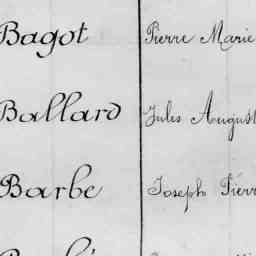 Bagot Pierre Marie
Ballard Jules August
Barbe Joseph Pierr